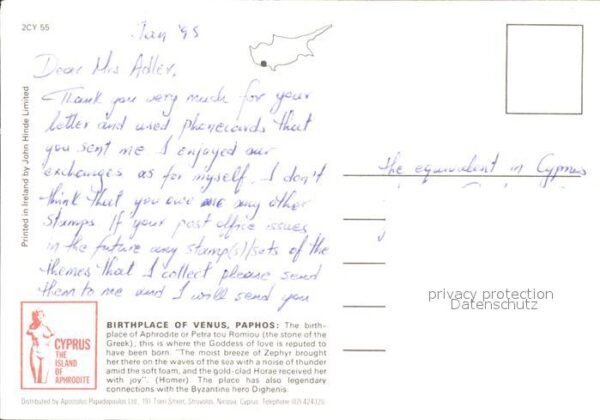 2CY 55
Jan '95
Dear Mrs Adler,
Thank you very much for your
letter and used phonecards that
you sent me I enjoyed our
exchanges as for myself. I don't
think that you owe me any other
stamps. If your post office issues
in the future any stamp(s)/sets of the
themes that I collect please send
them to me and I will send you
the equivalent in Cyprus
Printed in Ireland by John Hinde Limited
privacy protection
Datenschutz
CYPRUS
THE
ISLAND
OF
APHRODITE
BIRTHPLACE OF VENUS, PAPHOS: The birth-
place of Aphrodite or Petra tou Romiou (the stone of the
Greek); this is where the Goddess of love is reputed to
have been born. "The moist breeze of Zephyr brought
her there on the waves of the sea with a noise of thunder
amid the soft foam, and the gold-clad Horae received her
with joy". (Homer). The place has also legendary
connections with the Byzantine hero Dighenis.
Distributed by Apostolos Papadopoulos Ltd., 191 Tseri Street, Strovolos, Nicosia, Cyprus. Telephone (02) 424329.